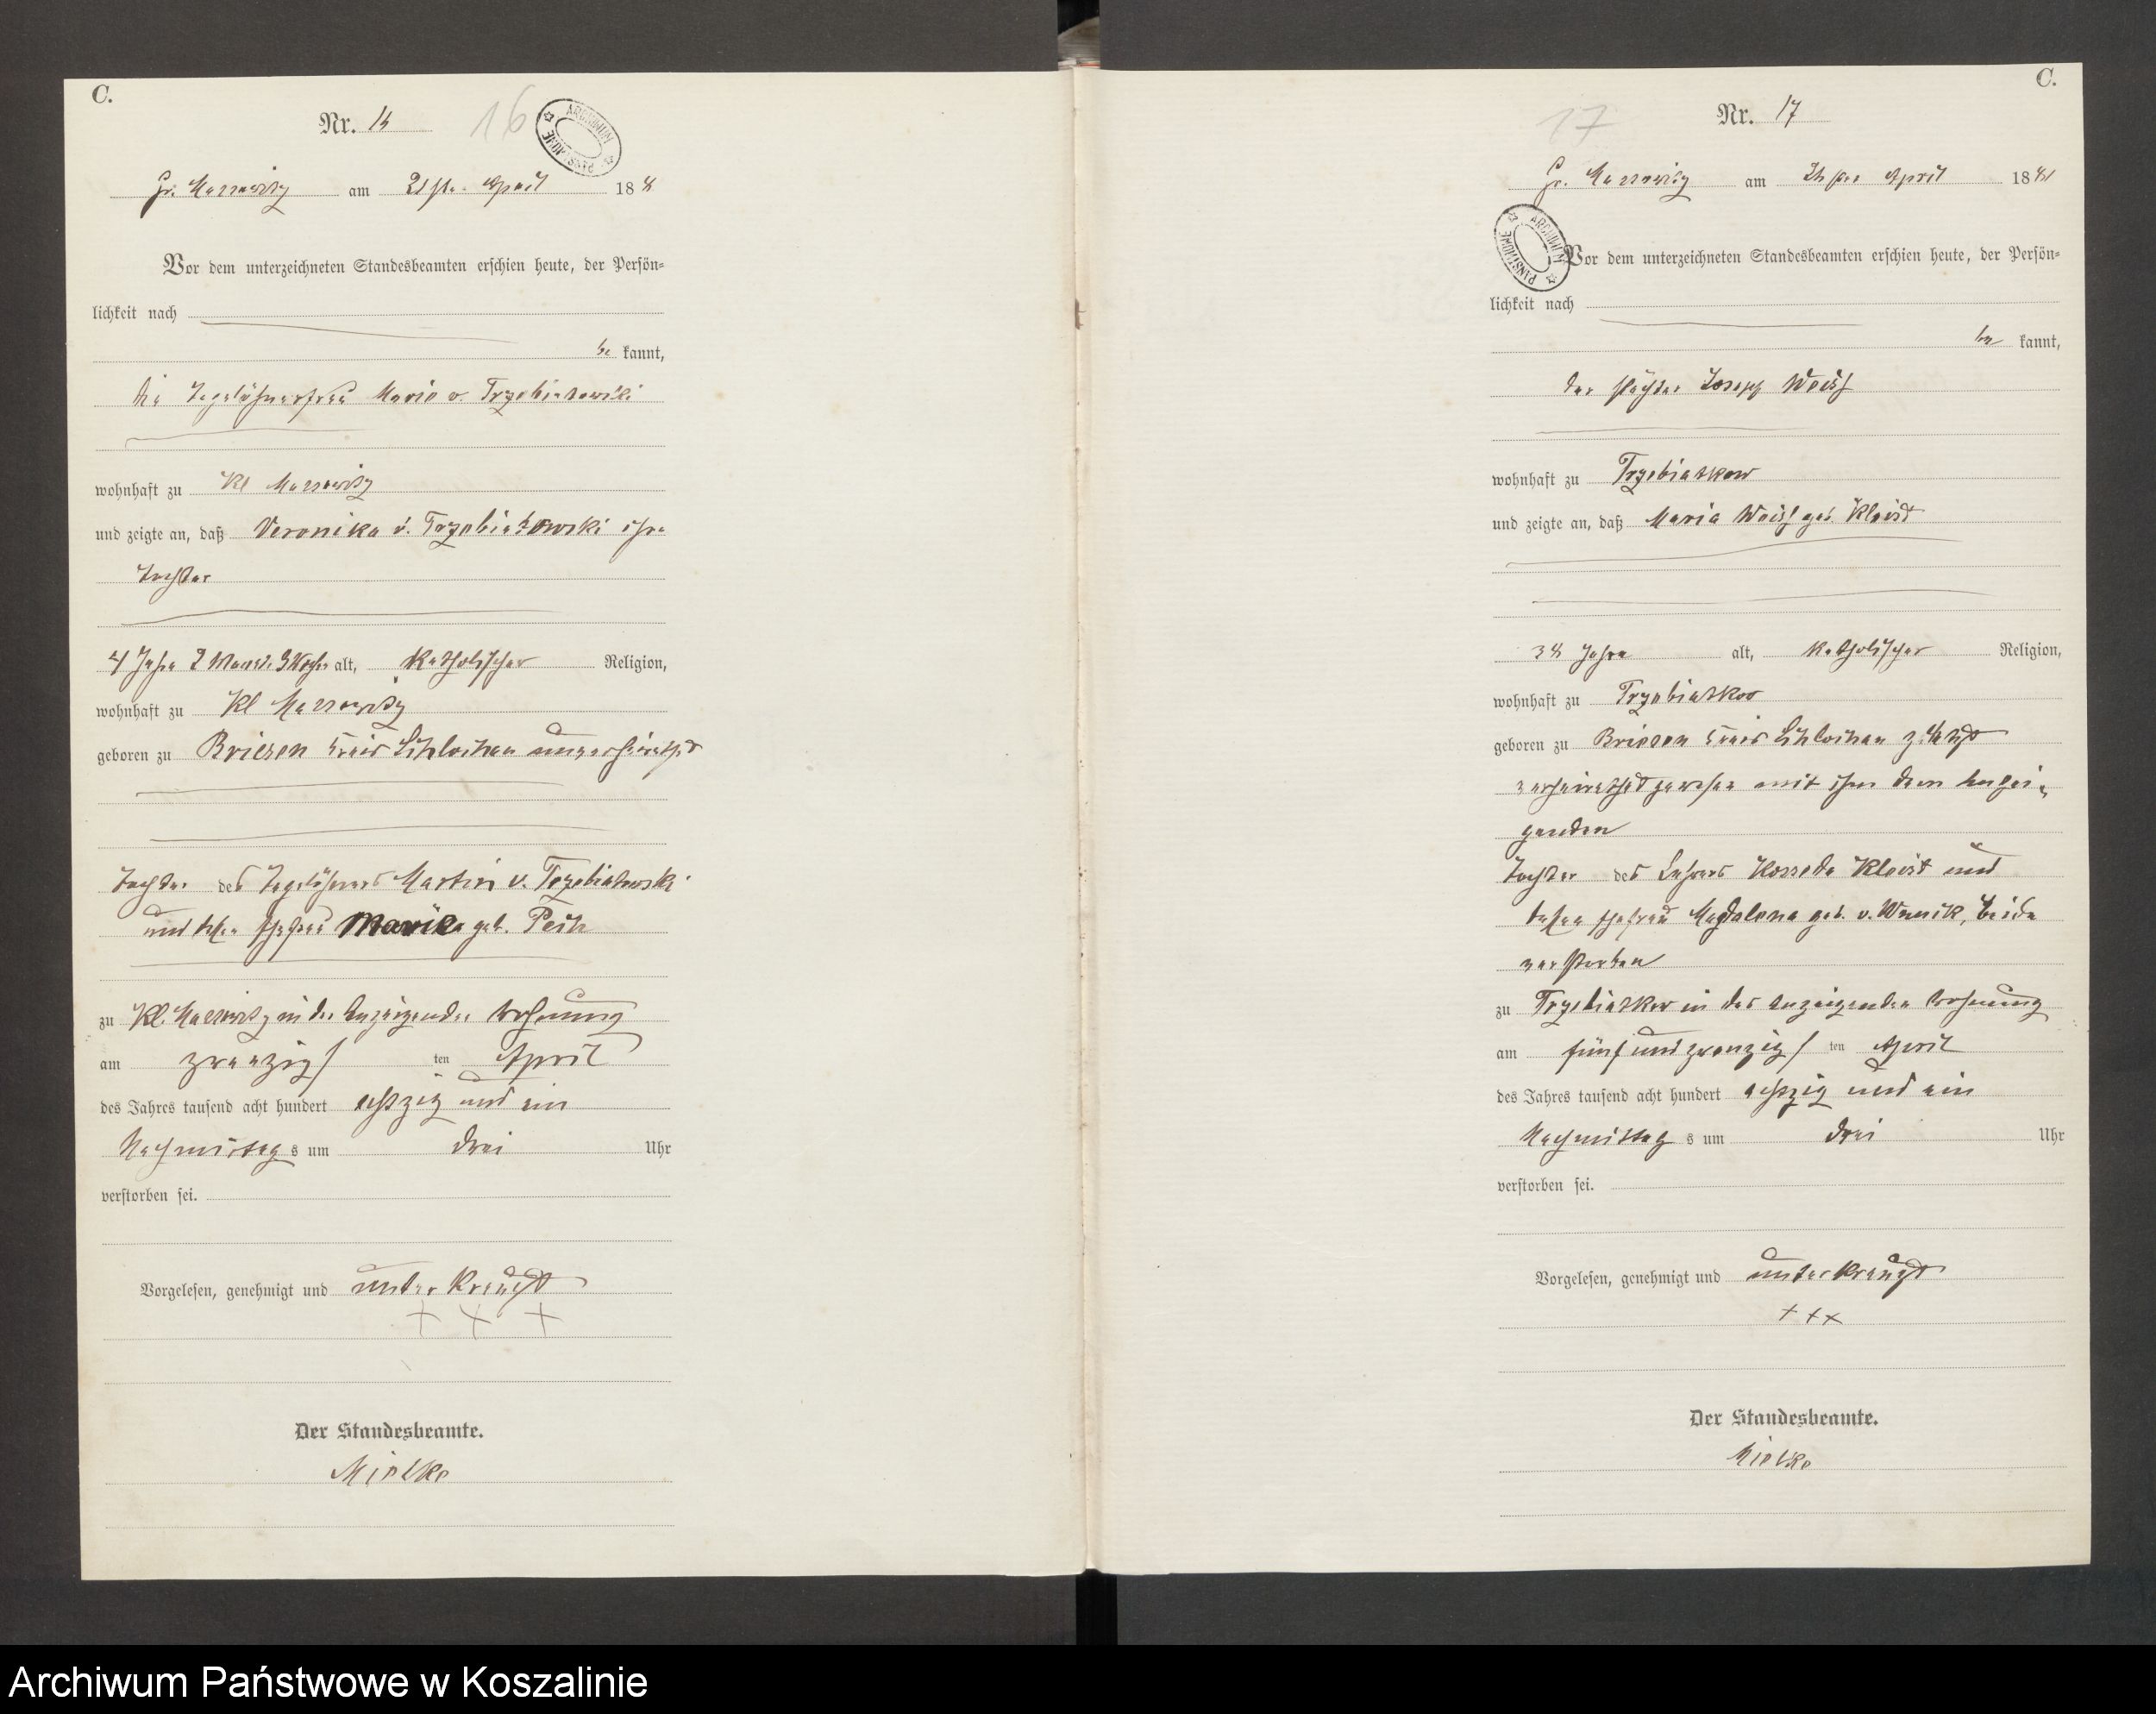 C.
Nr. 16
16
ARCHIWUM PAŃSTWOWE
Gr. Massowitz am 21ten April 188
Vor dem unterzeichneten Standesbeamten erschien heute, der Persön=
lichkeit nach
be kannt,
die Tagelöhnerfrau Marie v. Trzebiatowski
wohnhaft zu Kl Massowitz
und zeigte an, daß Veronika v. Trzebiatowski ihre
Tochter
4 Jahre 2 Monate 3 Wochen alt, katholischer Religion,
wohnhaft zu Kl Massowitz
geboren zu Briesen Kreis Schlochau unverheirathet
Tochter des Tagelöhners Martin v. Trzebiatowski
und dessen Ehefrau Marie geb.
zu Kl. Massowitz in der Anzeigenden Wohnung
am zwanzigs ten April
des Jahres tausend acht hundert achtzig und ein
Nachmittag s um drei Uhr
verstorben sei.
Vorgelesen, genehmigt und unterkreuzt
+ + +
Der Standesbeamte.
Mielke
C.
17
Nr. 17
Gr. Massowitz am 26ten April 1881
ARCHIWUM PAŃSTWOWE
Vor dem unterzeichneten Standesbeamten erschien heute, der Persön=
lichkeit nach
be kannt,
der Pächter Joseph Weiß
wohnhaft zu Trzebiatkow
und zeigte an, daß Maria Weiß geb. Kleist
38 Jahre alt, katholischer Religion,
wohnhaft zu Trzebiatkow
geboren zu Briesen Kreis Schlochau zuletzt
verheirathet gewesen mit ihm dem Anzei=
genden
Tochter des Lehrers Kleist und
dessen Ehefrau Magdalena geb. v. Wnuck, beide
verstorben
zu Trzebiatkow in des Anzeigenden Wohnung
am fünf und zwanzigs ten April
des Jahres tausend acht hundert achtzig und ein
Nachmittag s um drei Uhr
verstorben sei.
Vorgelesen, genehmigt und unterkreuzt
+ + +
Der Standesbeamte.
Mielke
Archiwum Państwowe w Koszalinie